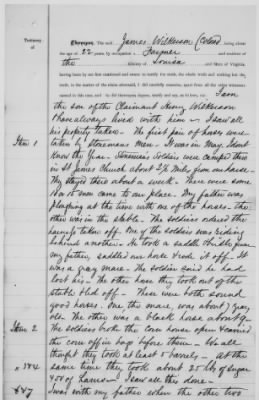 Testimony of
Thereupon, The said James Wilkerson (Colored) being about
the age of 22 years, by occupation a Farmer and resident of
the County of Louisa and State of Virginia,
having been by me first cautioned and sworn to testify the truth, the whole truth and nothing but the
truth, in the matter of the claim aforesaid,
I am
the son of the Claimant Henry Wilkerson
I have always lived with him & I saw all
his property taken. The first pair of horses were
Item 1
taken by men. It was in May. I dont
know the Year. soldiers were camped then
in St James Church about 3/4 miles from our house.
They stayed there about a week. There were some
10 or 15 men came to our place. My father was
ploughing at the time with one of the horses. the
other was in the stable. The soldiers ordered the
harness taken off. One of the soldiers was riding
behind another. He took a saddle & bridle from
my father, saddled our horse & rode it off. It
was a gray mare. The soldier said he had
lost his. The other horse they took out of the
stable & led off. These were both sound
good horses. One the mare, was about 7 years
old. The other was a black horse about 9.
Item 2
The soldiers broke the corn house open & carried
the corn off in bags before them. We all
thought they took at least 5 barrels. At the
" 3 & 4
same time they took about 25 lbs of sugar
& 50 of hams. I saw all this done.
6 & 7
I was with my father when the other two